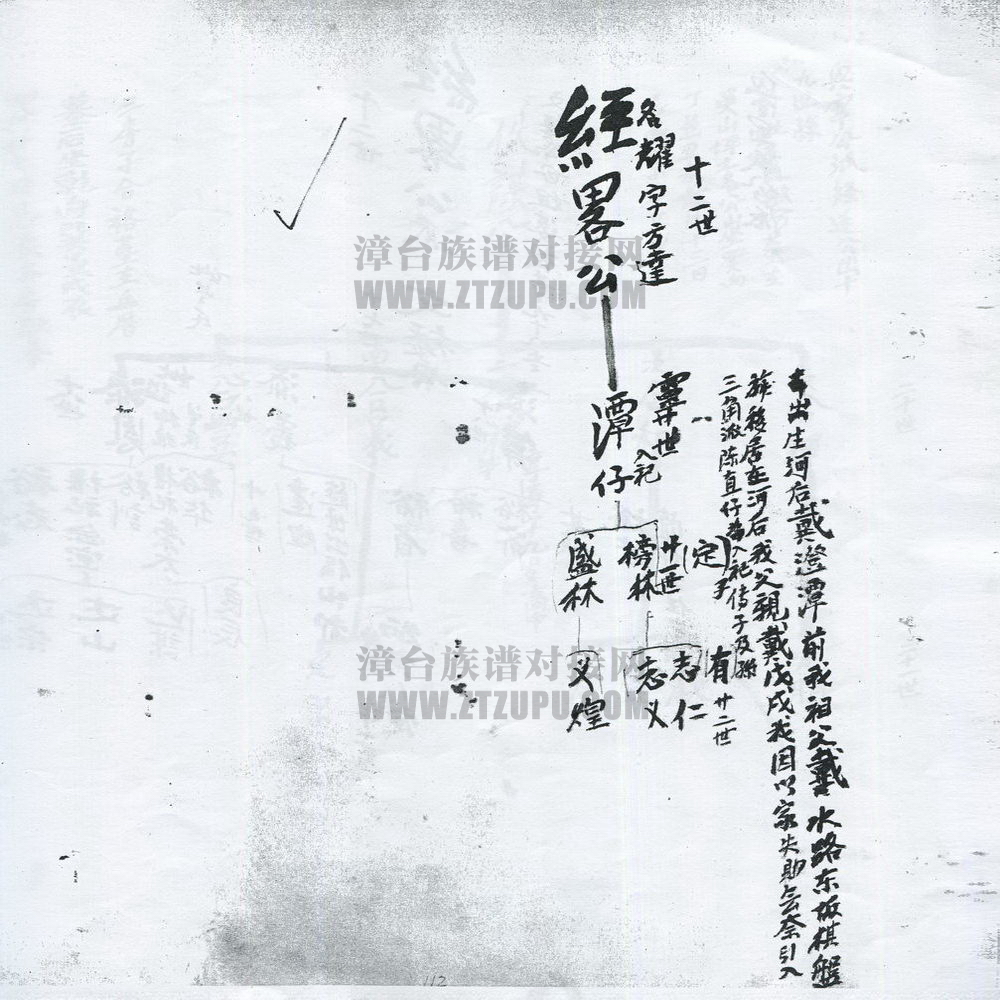 十二世
名耀字方達
經畧公
漳台族谱对接网
WWW.ZTZUPU.COM
出庄河后戴澄潭前我祖父戴水路东坂棋盤
族移居在河后我父親戴戊戌我因以家失助奈引入
三角派陈直仔為入祀傳子及孫
世
入祀
潭仔
(定)子
廿一世
榜林
盛林
有廿二世
志仁
志义
义煌
漳台族谱对接网
WWW.ZTZUPU.COM
112